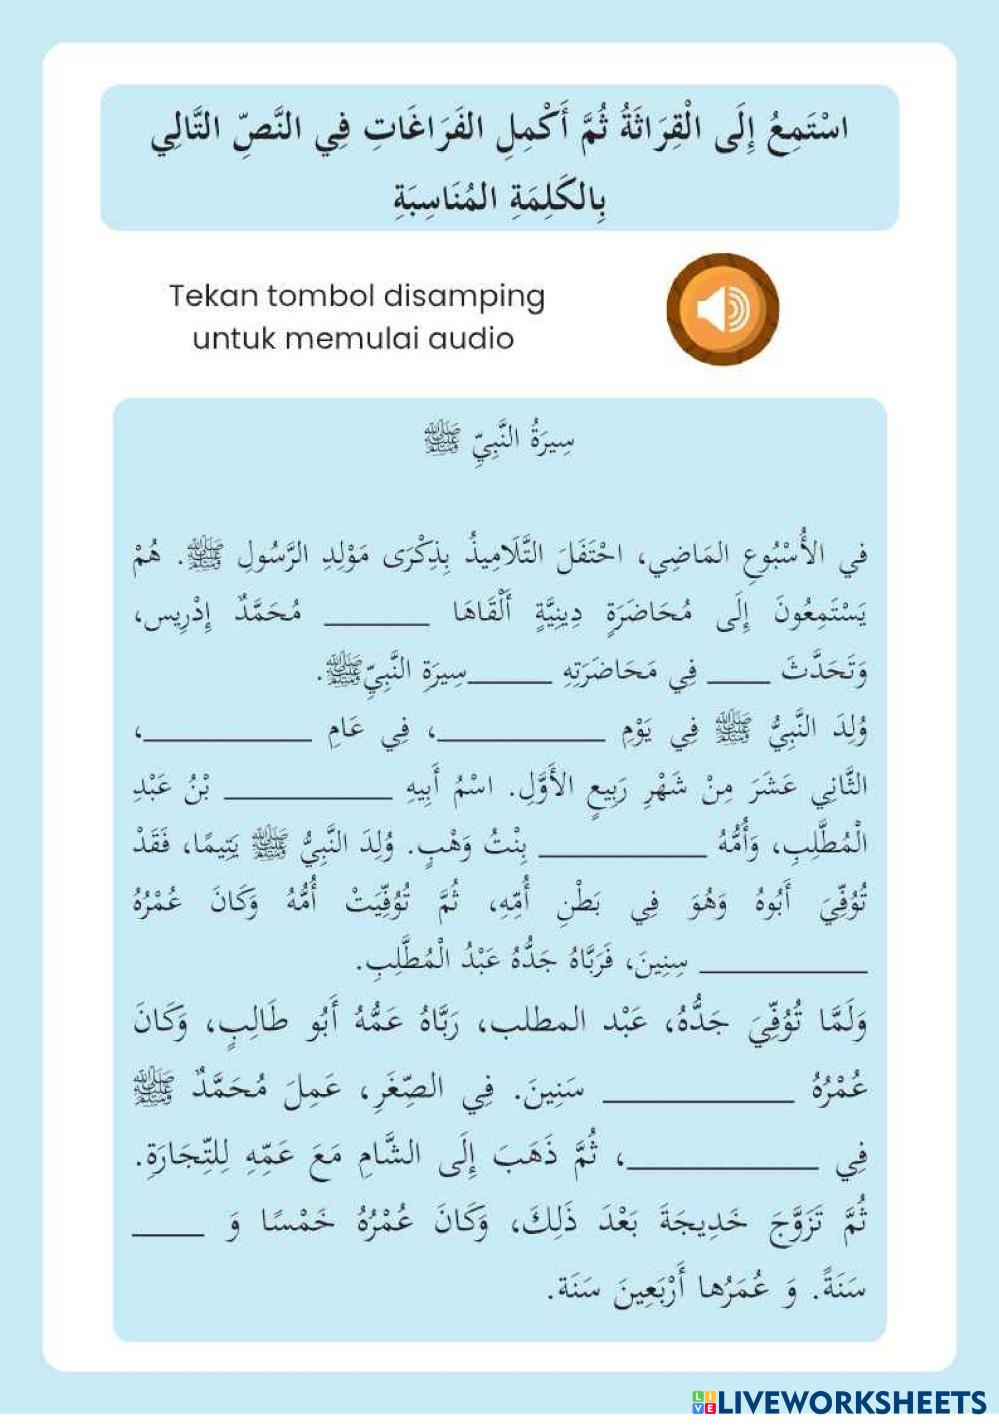 اسْتَمِعُ إِلَى الْقِرَاثَةُ ثُمَّ أَكْمِلِ الفَرَاغَاتِ فِي النَّصِّ التَّالِي
بِالكَلِمَةِ المُنَاسِبَةِ
Tekan tombol disamping
untuk memulai audio
سِيرَةُ النَّبِيِّ ﷺ
في الأُسْبُوعِ المَاضِي، احْتَفَلَ التَّلَامِيذُ بِذِكْرَى مَوْلِدِ الرَّسُولِ ﷺ. هُمْ
يَسْتَمِعُونَ إِلَى مُحَاضَرَةٍ دِينِيَّةٍ أَلْقَاهَا ______ مُحَمَّدٌ إِدْرِيس،
وَتَحَدَّثَ ____ فِي مَحَاضَرَتِهِ _____سِيرَةِ النَّبِيِّﷺ.
وُلِدَ النَّبِيُّ ﷺ فِي يَوْمِ __________، فِي عَامِ __________،
الثَّانِي عَشَرَ مِنْ شَهْرِ رَبِيعِ الأَوَّلِ. اسْمُ أَبِيهِ __________ بْنُ عَبْدِ
الْمُطَّلِبِ، وَأُمُّهُ __________ بِنْتُ وَهْبٍ. وُلِدَ النَّبِيُّ ﷺ يَتِيمًا، فَقَدْ
تُوُفِّيَ أَبُوهُ وَهُوَ فِي بَطْنِ أُمِّهِ، ثُمَّ تُوُفِّيَتْ أُمُّهُ وَكَانَ عُمْرُهُ
__________ سِنِينَ، فَرَبَّاهُ جَدُّهُ عَبْدُ الْمُطَّلِبِ.
وَلَمَّا تُوُفِّيَ جَدُّهُ، عَبْد المطلب، رَبَّاهُ عَمُّهُ أَبُو طَالِبٍ، وَكَانَ
عُمْرُهُ __________ سَنِينَ. فِي الصِّغَرِ، عَمِلَ مُحَمَّدٌ ﷺ
فِي __________، ثُمَّ ذَهَبَ إِلَى الشَّامِ مَعَ عَمِّهِ لِلتِّجَارَةِ.
ثُمَّ تَزَوَّجَ خَدِيجَةَ بَعْدَ ذَلِكَ، وَكَانَ عُمْرُهُ خَمْسًا وَ ____
سَنَةً. وَ عُمَرُها أَرْبَعِينَ سَنَة.
LIVEWORKSHEETS